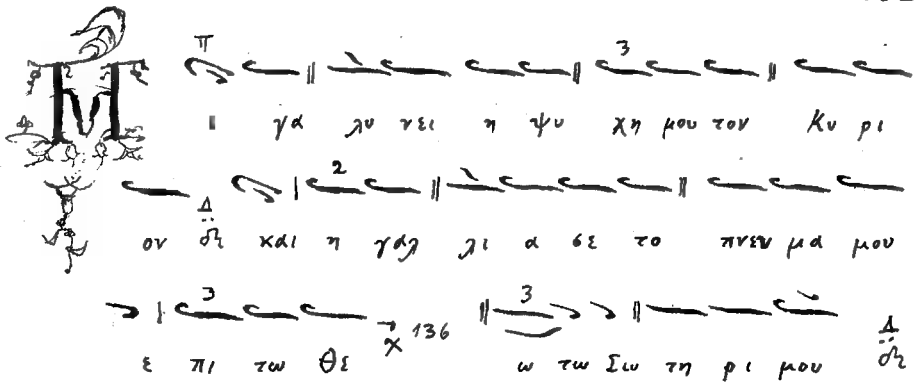 Μ ι γα λυ νει η ψυ χη μου τον Κυ ρι
ον Δ και η γαλ λι α σε το πνευ μα μου
ε πι τω Θε χ 136 ω τω Σω τη ρι μου Δ